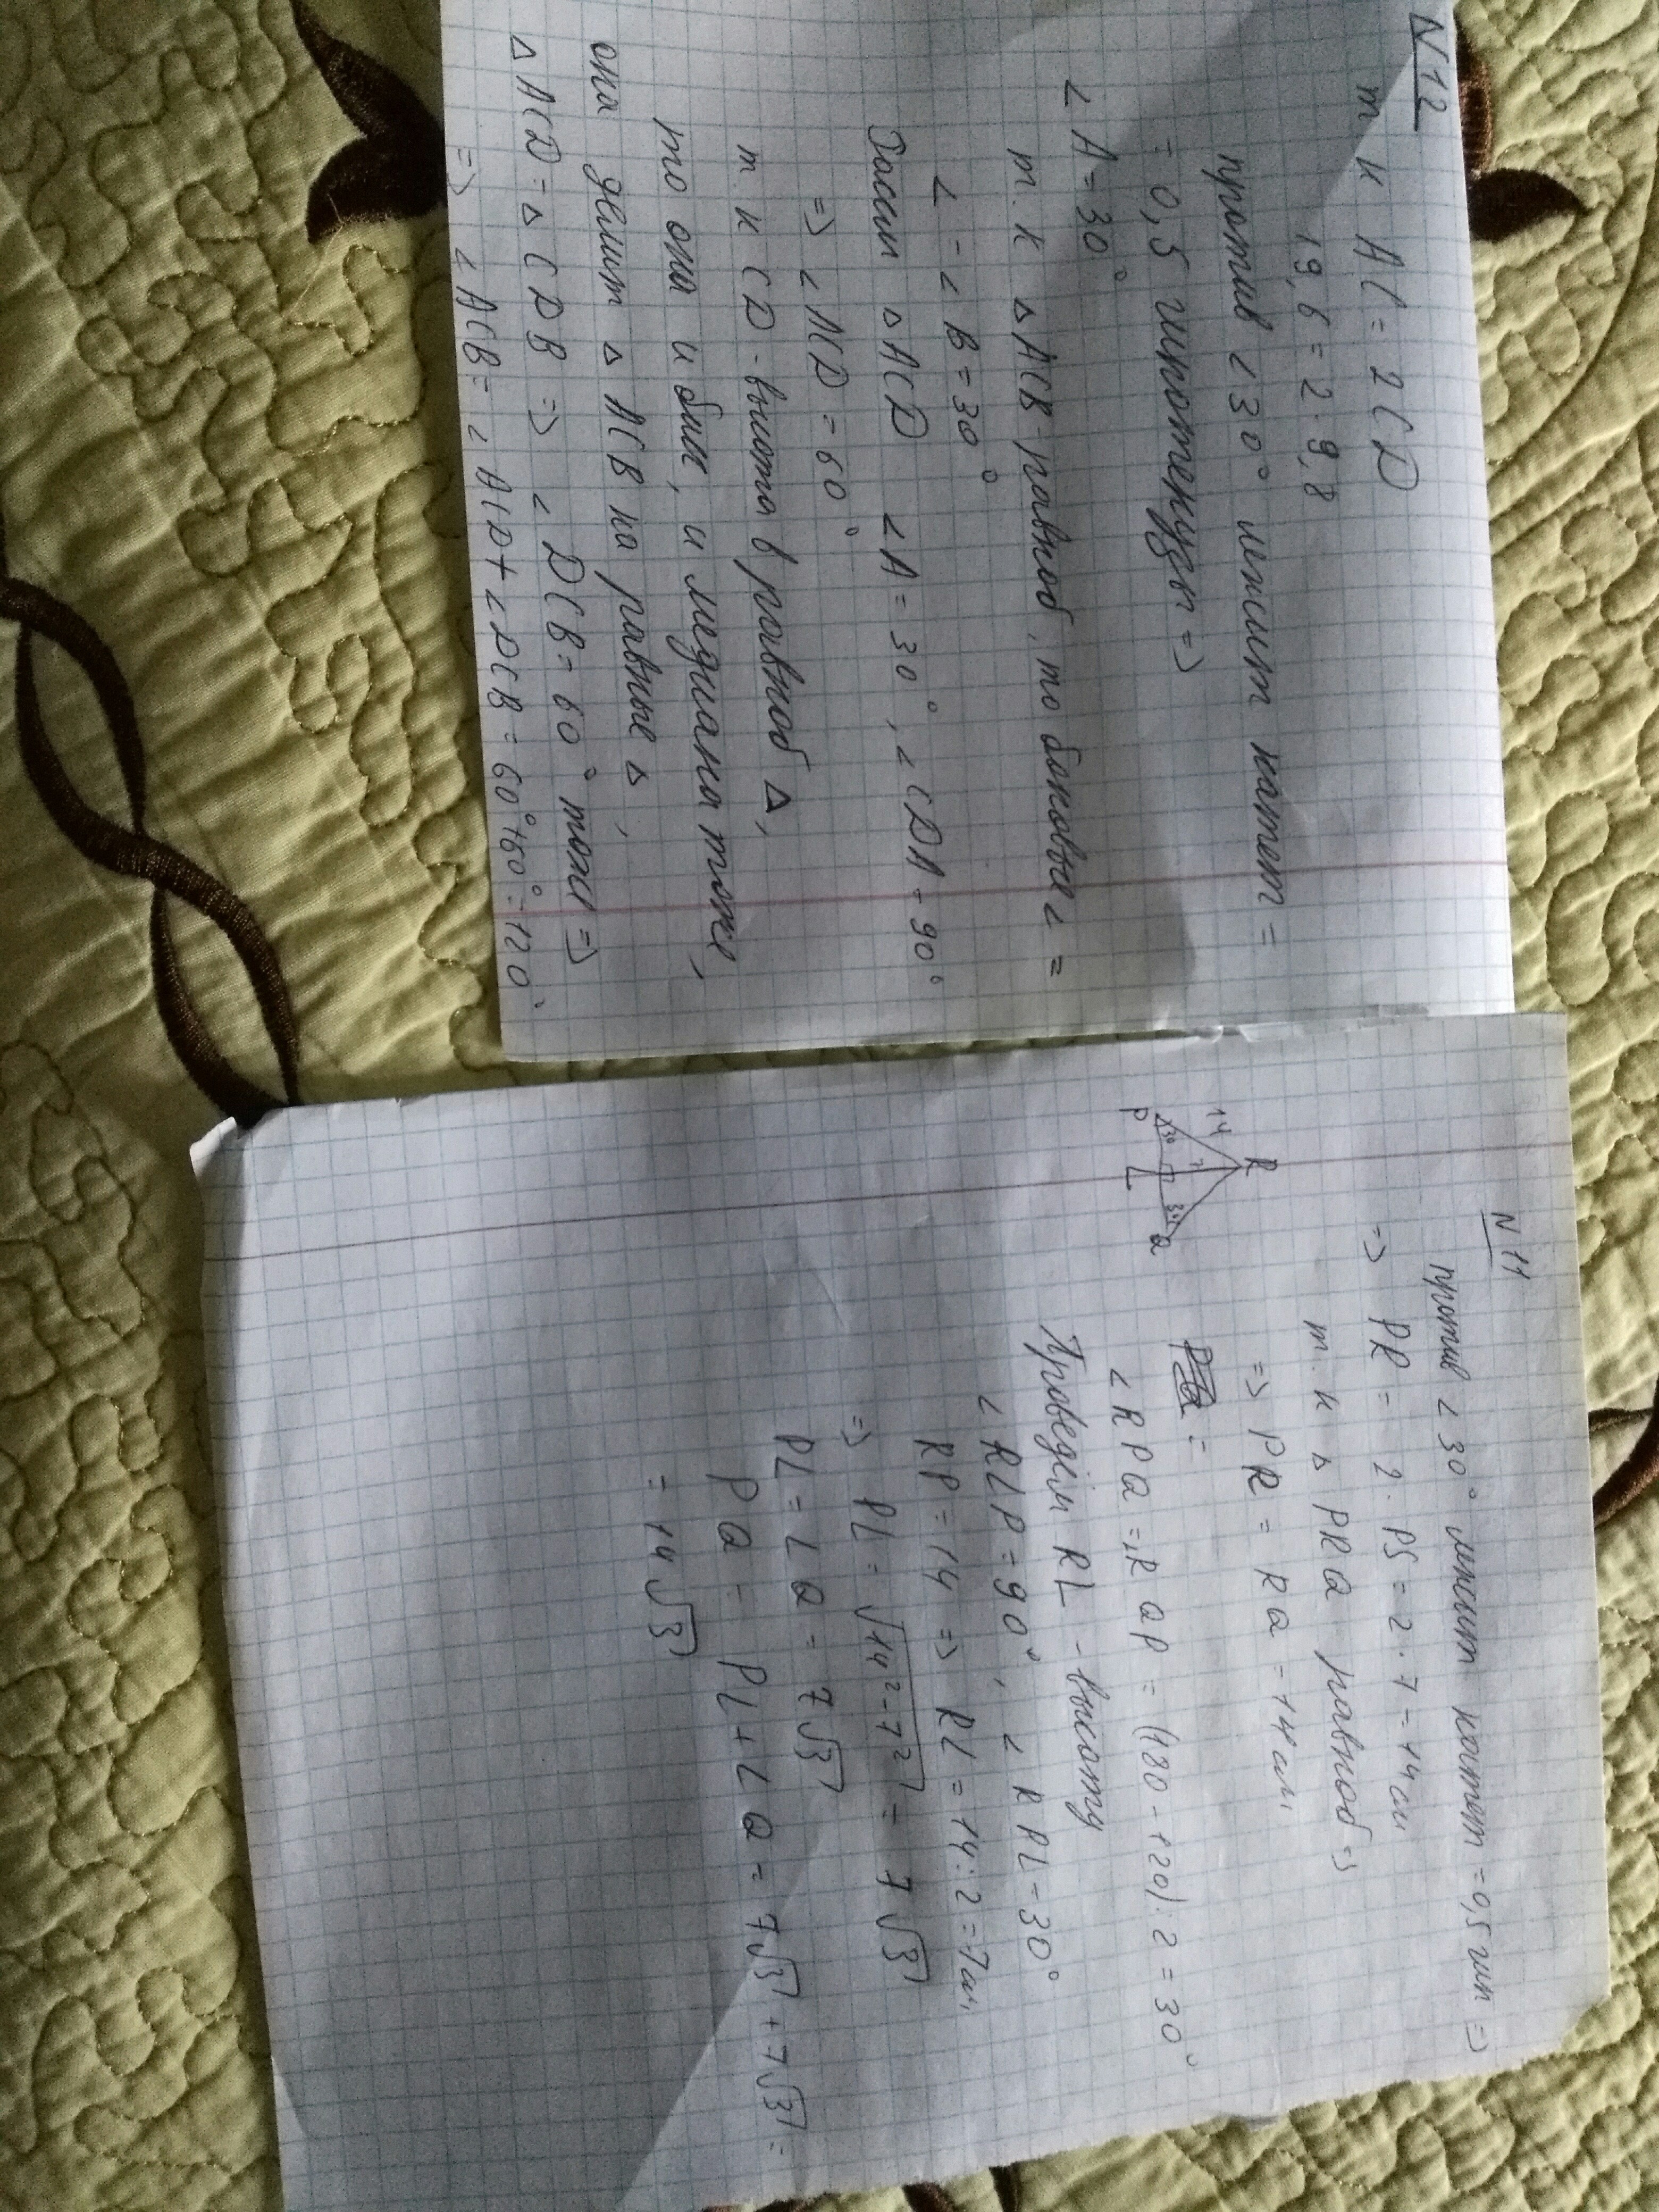 N12
т к AC = 2CD
19,6 = 2·9,8
против ∠30° лежит катет =
= 0,5 гипотенузы =>
∠A = 30°
т. к △ACB равноб, то боковые ∠ =
∠ = ∠B = 30°
Рассм △ACD ∠A = 30°, ∠CDA = 90°
=> ∠ACD = 60°
т. к CD - высота в равноб △,
то она и бис, и медиана тоже,
она делит △ACB на равные △,
△ACD = △CDB => ∠DCB = 60° тоже =>
=> ∠ACB = ∠ACD + ∠DCB = 60° + 60° = 120°
N11
против ∠30° лежит катет = 0,5 гип =>
=> PR = 2·PS = 2·7 = 14см
т. к △PRQ равноб =>
=> PR = RQ = 14см,
=
∠RPQ = ∠RQP = (180 - 120):2 = 30°
Проведём RL - высоту
∠RLP = 90°, ∠RPL = 30°
RP = 14 => RL = 14:2 = 7см,
=> PL = √14²-7² = 7√3
PL = LQ = 7√3
PQ = PL + LQ = 7√3 + 7√3 =
= 14√3
R
14
7
P
30
L
30
Q